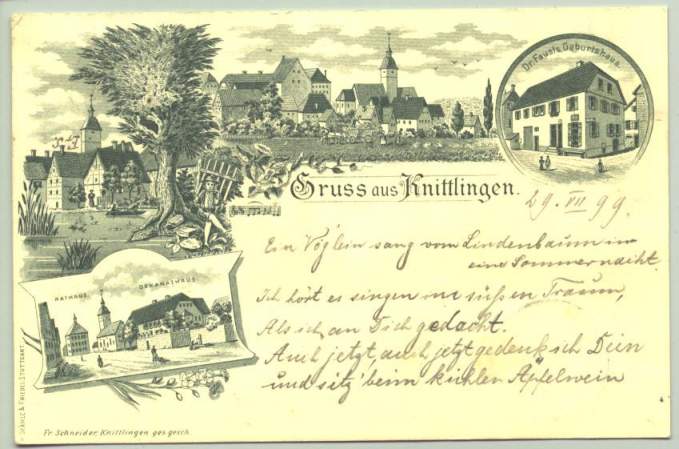 Dr. Faust's Geburtshaus.
Gruss aus Knittlingen.
29. VII 99.
Ein Vöglein sang vom Lindenbaum in
eine Sommernacht
Ich hört es singen im süßen Traum,
Als ich an Dich gedacht.
Auch jetzt, auch jetzt gedenk ich Dein
und sitz' beim kühlen Äpfelwein
RATHAUS.
DEKANATHAUS.
& FRIEDEL STUTTGART.
Fr. Schneider, Knittlingen ges. gesch.